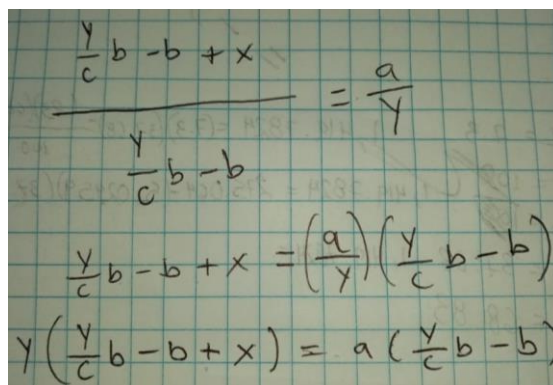 (y/c b - b + x) / (y/c b - b) = a/y
y/c b - b + x = (a/y)(y/c b - b)
y(y/c b - b + x) = a(y/c b - b)